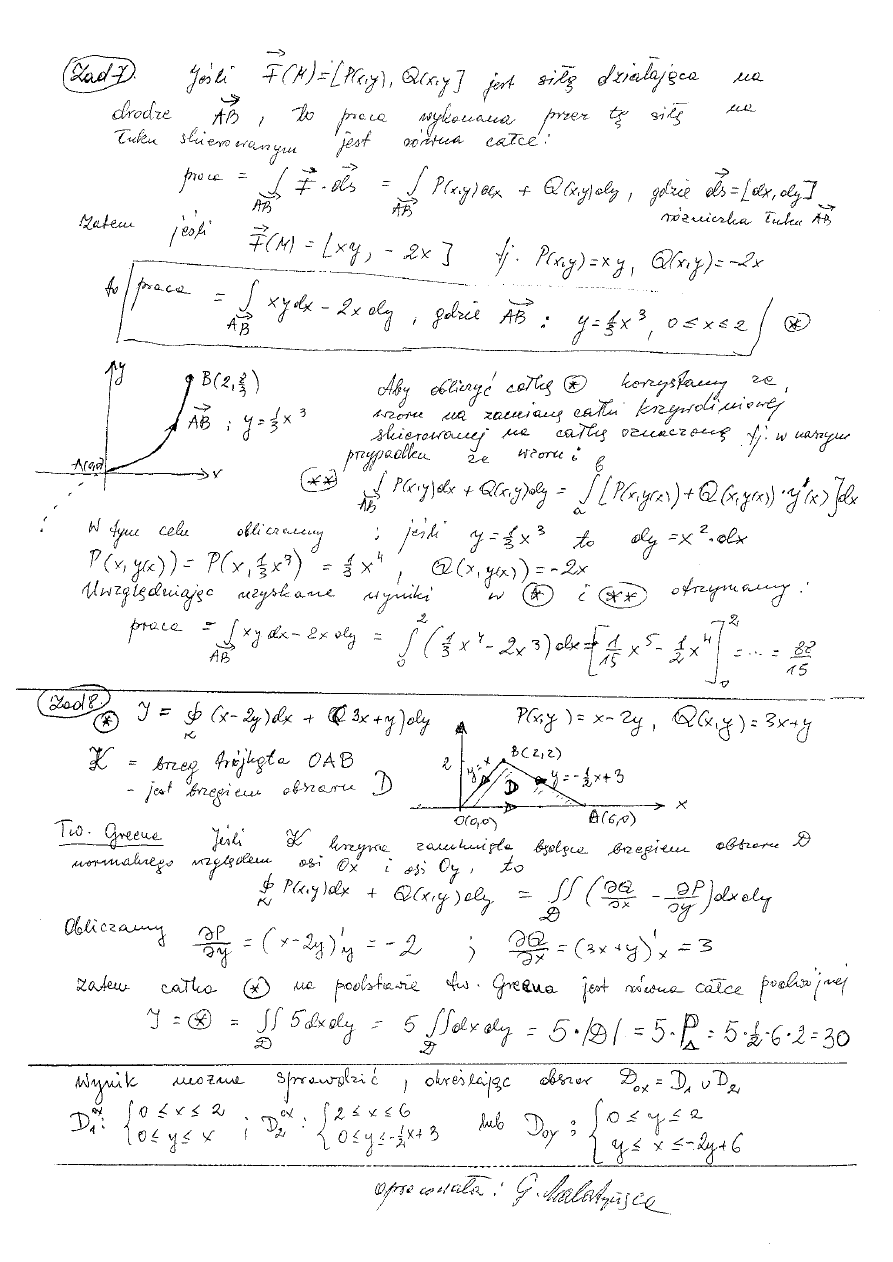 Zad 7. Jeśli F(M)=[P(x,y), Q(x,y)] jest siłą działająca na
drodze AB, to praca wykonana przez tę siłę na
łuku skierowanym jest równa całce:
praca = ∫ F·ds = ∫ P(x,y)dx + Q(x,y)dy, gdzie ds=[dx,dy]
AB AB różniczka łuku AB
Zatem jeśli F(M) = [xy, -2x] tj. P(x,y)=xy, Q(x,y)=-2x
to praca = ∫ xydx - 2x dy, gdzie AB : y=1/3x³, 0≤x≤2 (*)
AB
y
B(2,2/3)
AB ; y=1/3x³
A(0,0)
x
Aby obliczyć całkę (*) korzystamy ze,
wzoru na zamianę całki krzywoliniowej
skierowanej na całkę oznaczoną tj. w naszym
przypadku ze wzoru:
(**) ∫ P(x,y)dx + Q(x,y)dy = ∫ₐᵇ [P(x,y(x)) + Q(x,y(x))·y'(x)]dx
AB
W tym celu obliczamy : jeśli y=1/3x³ to dy=x²·dx
P(x,y(x)) = P(x,1/3x³) = 1/3x⁴, Q(x,y(x))=-2x
Uwzględniając uzyskane wyniki w (*) i (**) otrzymamy:
praca = ∫ xy dx - 2x dy = ∫₀² (1/3x⁴ - 2x³)dx = [1/15 x⁵ - 1/2 x⁴]₀² = ... = 82/15
AB
Zad 8. (*) J = ∮ (x-2y)dx + (3x+y)dy P(x,y) = x-2y, Q(x,y)=3x+y
K
K = brzeg trójkąta OAB
- jest brzegiem obszaru D
2
y=x
B(2,2)
D
y=-1/2x+3
O(0,0)
A(6,0)
x
Tw. Greena Jeśli K krzywa zamknięta będąca brzegiem obszaru D
normalnego względem osi Ox i osi Oy, to
∮ P(x,y)dx + Q(x,y)dy = ∬ (∂Q/∂x - ∂P/∂y)dxdy
K D
Obliczamy ∂P/∂y = (x-2y)'y = -2 ; ∂Q/∂x = (3x+y)'x = 3
Zatem całka (*) na podstawie tw. Greena jest równa całce podwójnej
J = (*) = ∬ 5dxdy = 5∬dxdy = 5·|D| = 5·P△ = 5·1/2·6·2=30
D D
Wynik można sprawdzić, określając obszar Dox = D₁ ∪ D₂
D₁ox: { 0≤x≤2 ; D₂ox: { 2≤x≤6 lub Doy : { 0≤y≤2
0≤y≤x 0≤y≤-1/2x+3 y≤x≤-2y+6
opracowała: G.